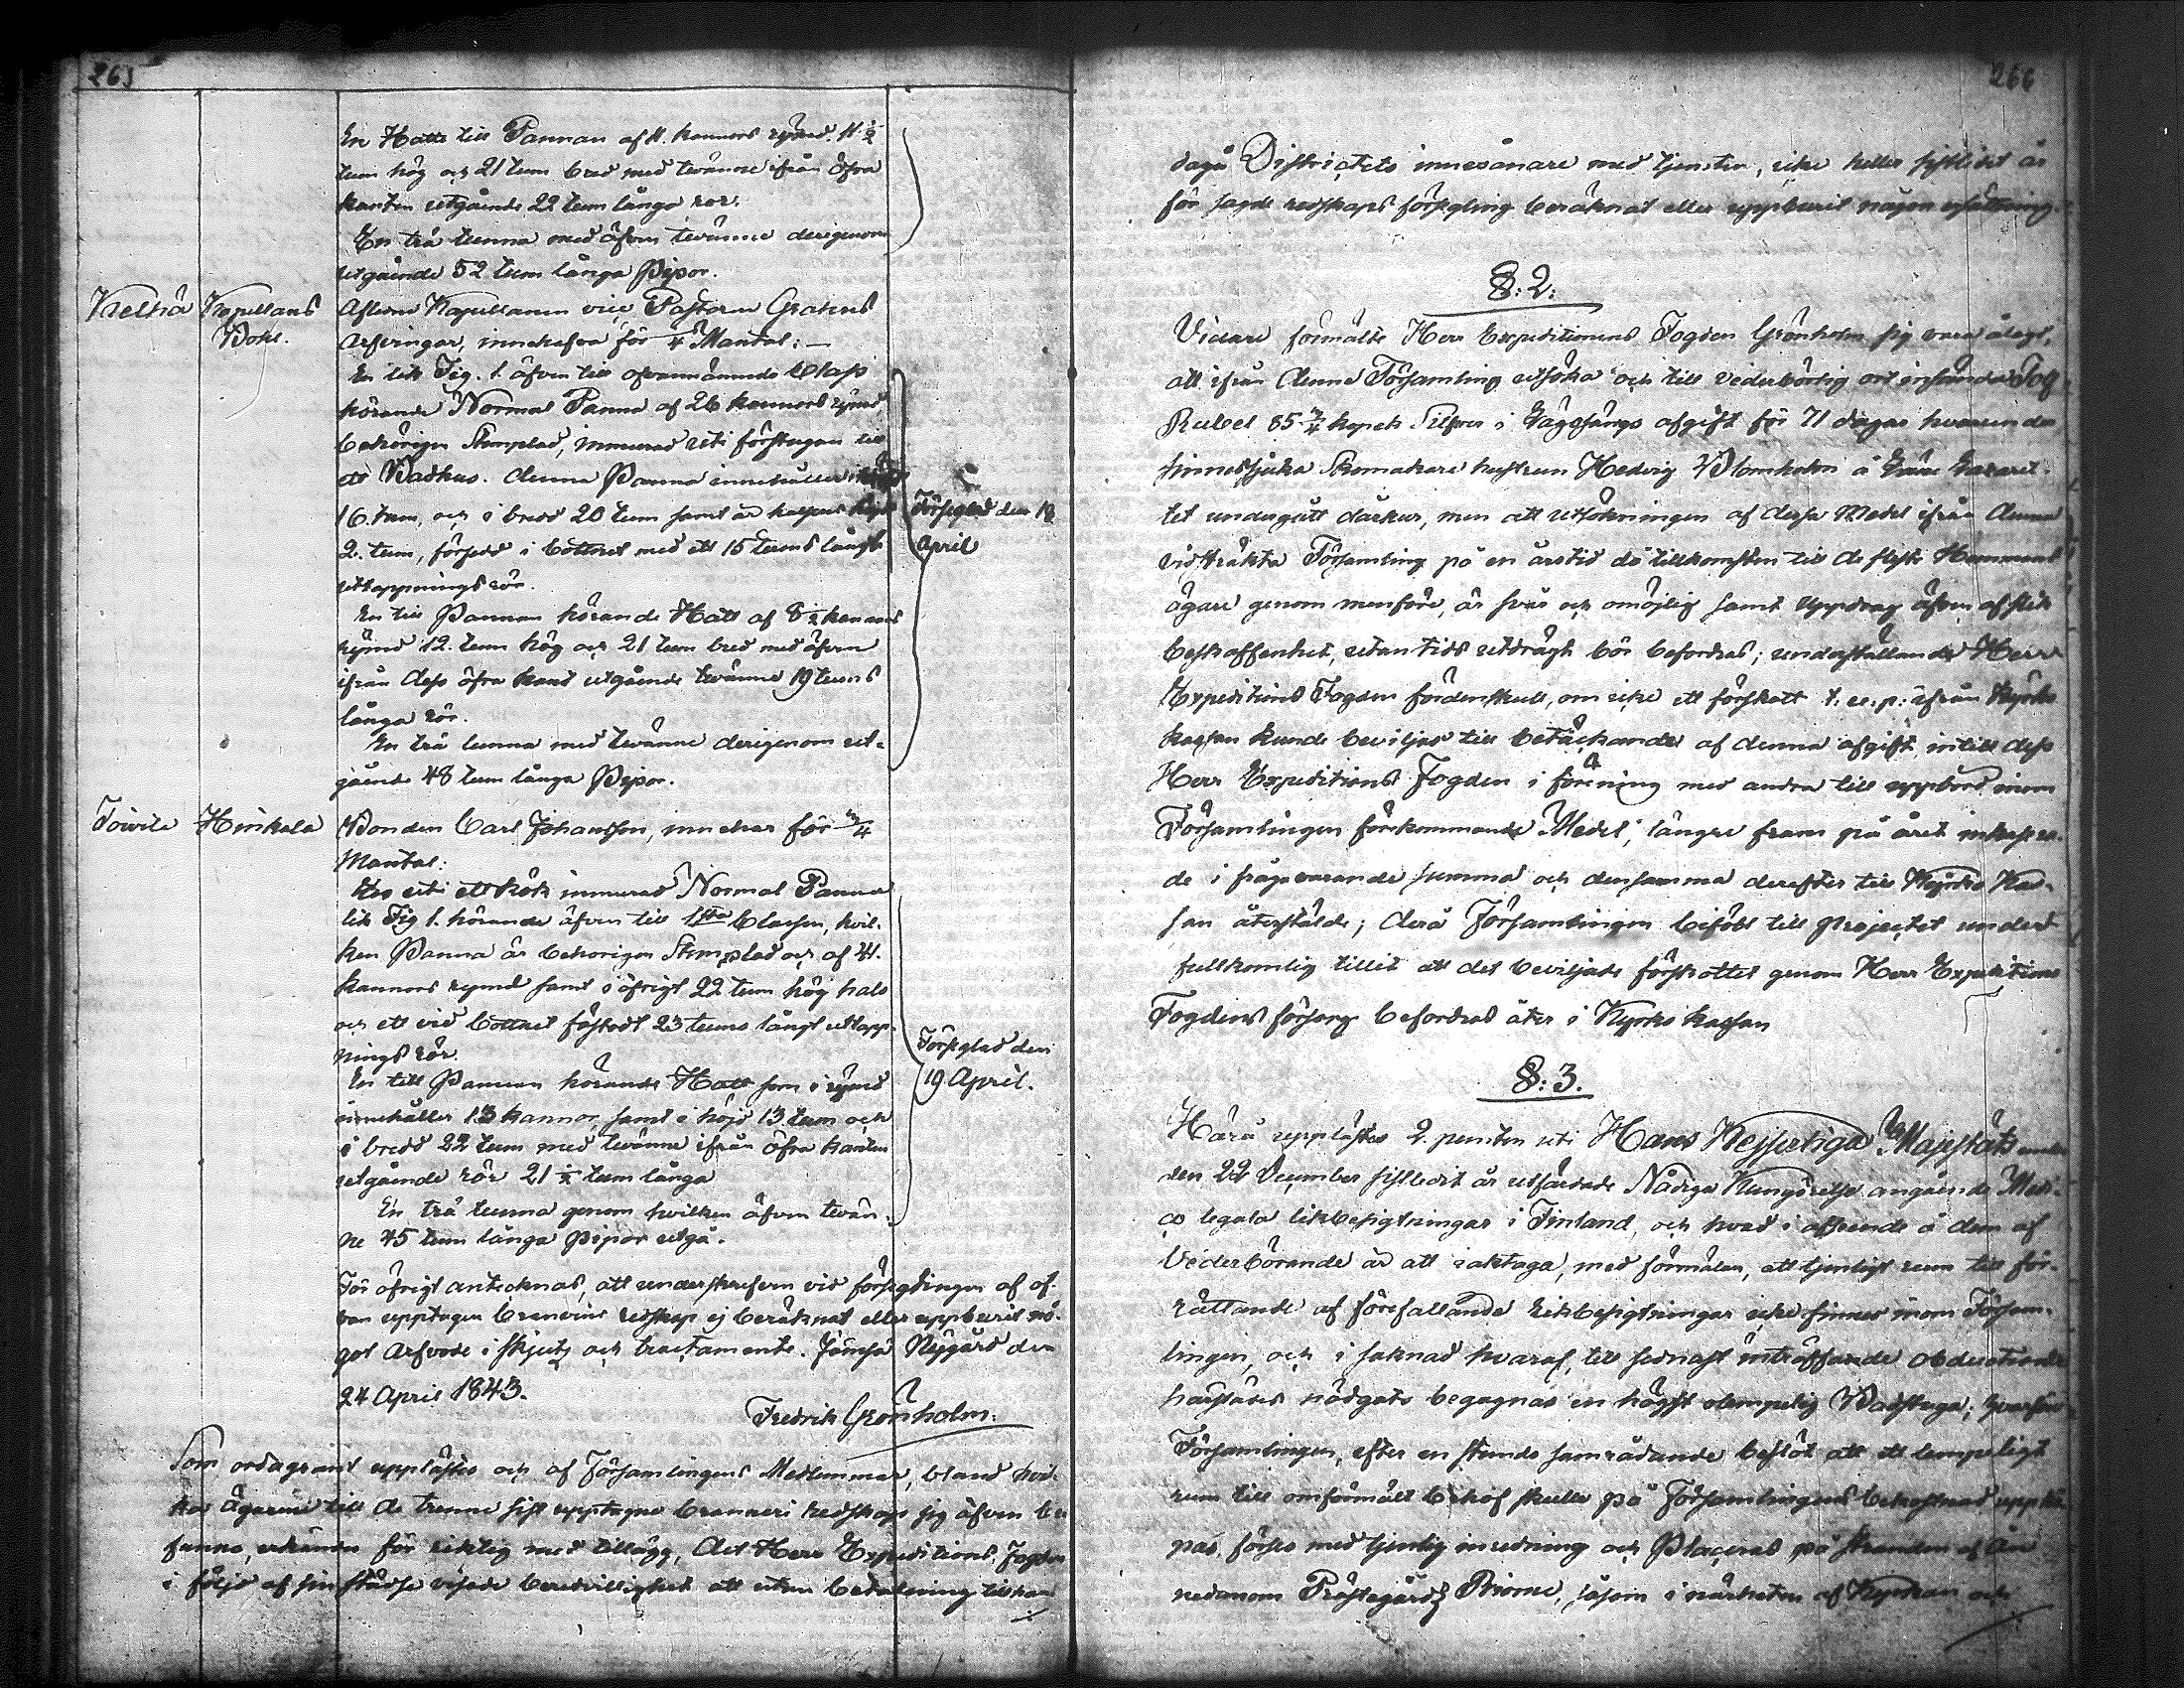 265
En Hatt till Pannan af 11. kannors rymd. 11 1/2
tum hög och 21 tum bred med tvänne ifrån öfra
kanten utgående 22 tum långa rör.
En trä tunna med äfven tvänne derigenom
utgående 52 tum långa Pipor.
Keltiä Kapellans
Bohl.
Aflidne Kapellanen vice Pastorn Grahns
Arfvingar, innehafva för Mantal:
En lik Fig. 1. äfven till ofvannämnde Class
hörande Normal Panna af 26 kannors rymd,
behörigen Stemplad, inmurad uti förstugan till
ett Badhus. Denna Panna innehåller
16. tum, och i bredd 20 tum samt är halsens höjd
2. tum, försedd i bottnet med ett 15 tums långt
uttappningsrör.
Förseglad den 18
April
En till Pannan hörande Hatt af 8 1/2 kannors
rymd 12. tum hög och 21 tum bred med äfven
ifrån dess öfra kant utgående tvänne 19 tums
långa rör.
En trä tunna med tvänne derigenom ut-
gående 48 tum långa Pipor.
Toivila Hinkala
Bonden Carl Johansson, innehar för 3/4
Mantal:
En uti ett kök inmurad Normal Panna
lik Fig 1. hörande äfven till 1sta Classen, hvil-
ken Panna är behörigen Stemplad och af 41.
kannors rymd samt i öfrigt 22 tum hög hals
och ett vid bottnet fästadt 23 tums långt uttapp-
nings rör.
En till Pannan hörande Hatt som i rymd
innehåller 13 kannor, samt i höjd 13 tum och
i bredd 22 tum med tvänne ifrån öfra kanten
utgående rör 21 1/2 tum långa
En trä tunna genom hvilken äfven tvän-
ne 45 tum långa pipor utgå.
Förseglad den
19 April.
För öfrigt antecknas, att underskrifven vid förseglingen af of-
van upptagen bränvins redskap ej beräknat eller uppburit nå-
got arfvode i skjuts och tractamente. Jämsä Nygård den
24 April 1843.
Fredrik Grönholm.
Som ordagrant upplästes och af Församlingens Medlemmar, bland hvil-
ka ägarene till de trenne sist upptagne bränneri redskap sig äfven be-
funno, erkändes för riktig med tillägg, det Herr Expeditions Fogden
i följe af sin städse visade beredvillighet att utan betalning tillhan
266
dagå Districtets innevånare med tjenster, icke heller sistlidet år
för sagde redskaps försegling beräknat eller uppburit någon ersättning.
§: 2:
Vidare förmälte Herr Expeditionens Fogden Grönholm sig vara ålagd,
att ifrån denne Församling utsöka och till vederbörlig ort insända Tolf
Rubel 85 5/7 kopek Silfver i Tågsängs afgift för 71 dagar hvarunder
sinnessjuka Skomakare hustrun Hedvig Blomholm å Läne Lazaret-
tet undergått dårkur, men att utsökningen af dessa Medel ifrån denna
vidsträkta Församling på en årstid då tillkomsten till de fleste Hemmans
ägare genom menföre, är svår och omöjlig samt Uppdrag äfven af slik
beskaffenhet, utan tids utdrägt bör befordras; underställande Herr
Expeditions Fogden fördenskull, om icke ett förskott t. v. p: ifrån Kyrko
kassan kunde beviljas till betäckande af denna afgift intill dess
Herr Expeditions Fogden i förening med andra till uppbörd inom
Församlingen förekommande Medel, längre fram på året inkassera-
de i frågavarande summa och densamma derefter till Kyrko Kas-
san återställde; derå Församlingen biföll till Projectet under
fullkomlig tillit att det beviljade förskottet genom Herr Expeditions
Fogdens försorg befordras åter i Kyrko kassan
§: 3.
Härå upplästes 2. punkten uti Hans Kejserliga Majestäts under
den 22 December sistledit år utfärdade Nådiga Kungörelse angående Medi-
co legala likbesigtningar i Finland, och hvad i afseende å dem af
Vederbörande är att iakttaga, med förmälan, att tjenligt rum till för-
rättande af förefallande likbesigtningar icke finnes inom Försam-
lingen, och i saknad hvaraf, till sednast inträffande obductions
nödgats begagnas en högst olämpelig Badstuga; hvarför
Församlingen, efter en stunds samrådande beslöt att ett lempeligt
rum till omförmält behof skulle på Församlingens bekostnad upptim-
pas, förses med tjenlig inredning och Placeras på stranden af ån
nedanom Prästegårds Riorne, såsom i närheten af Kyrkan och